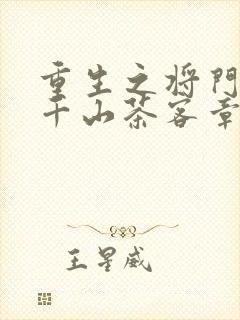 重生之将门
千山茶客章
王星威